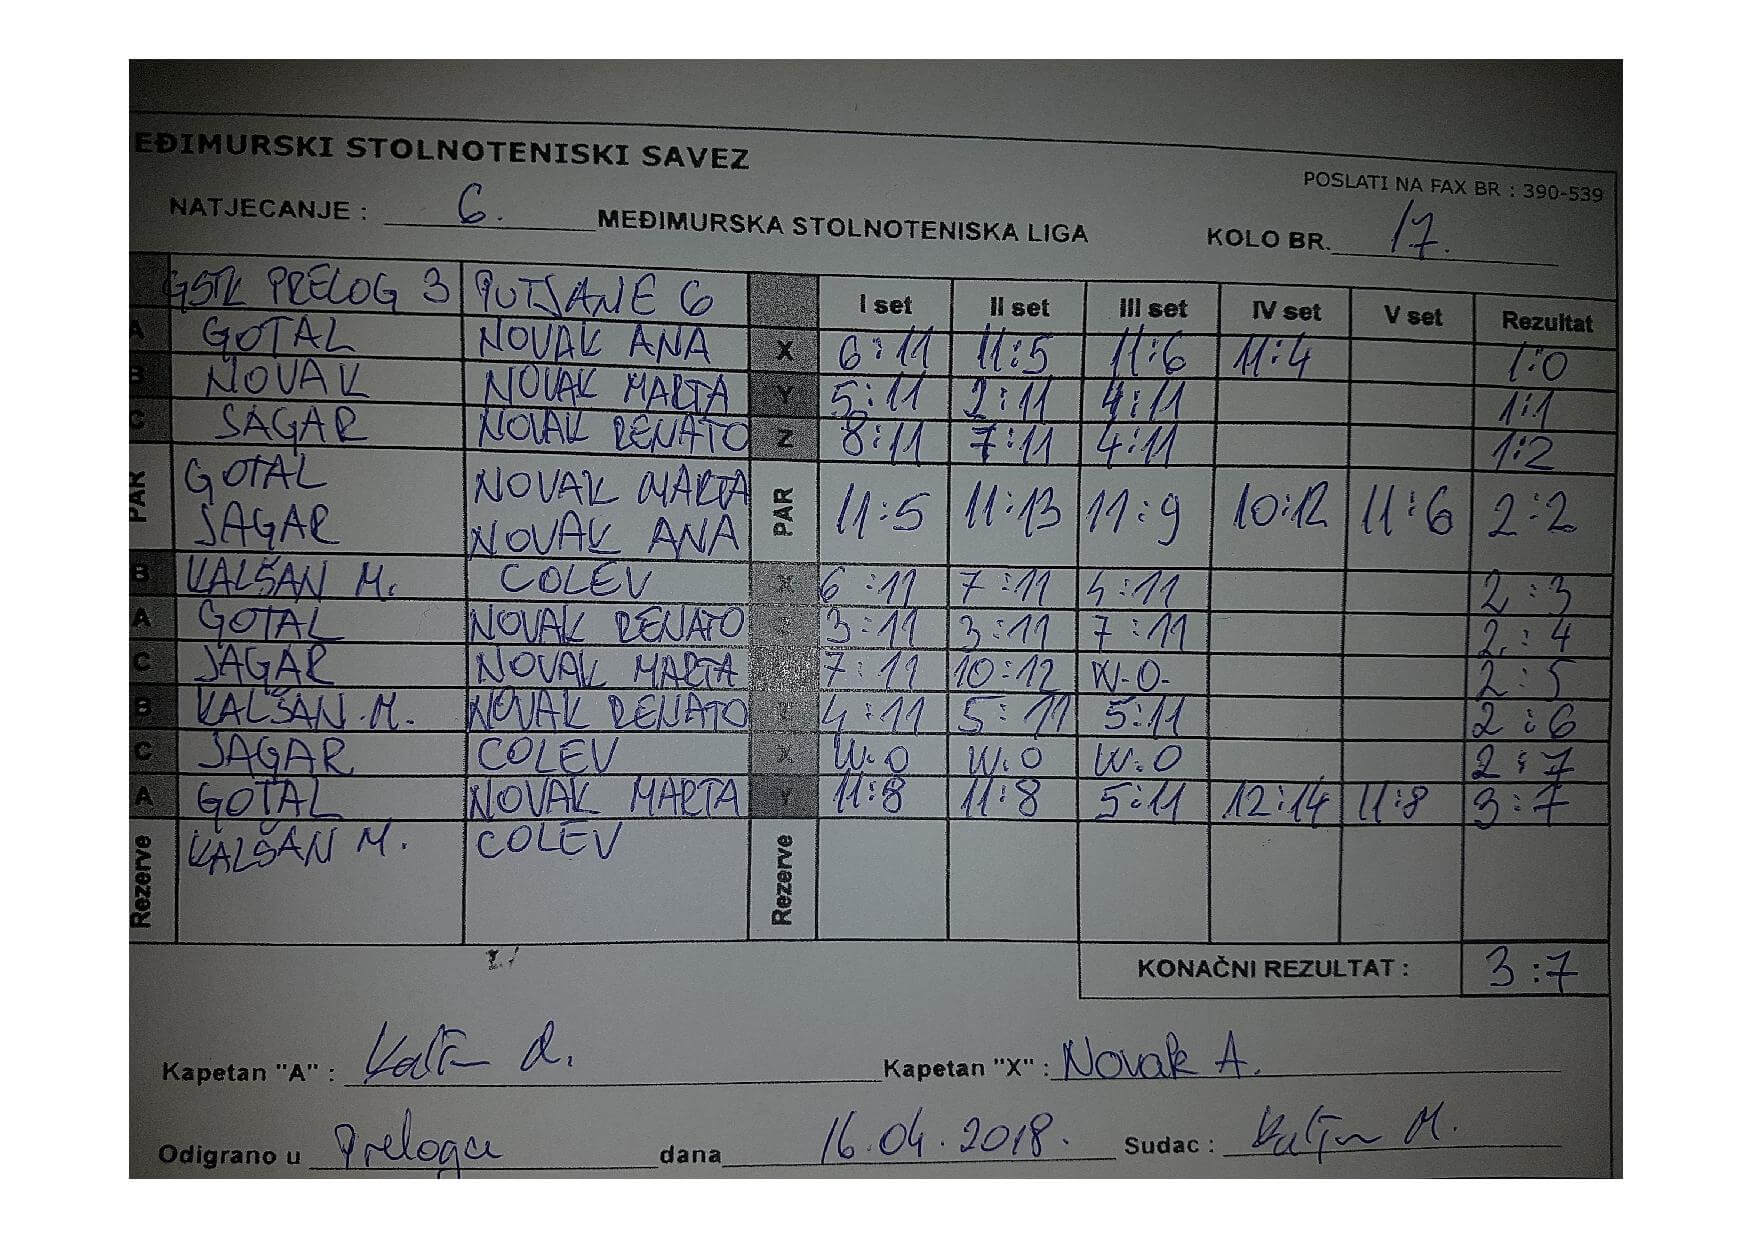 EĐIMURSKI STOLNOTENISKI SAVEZ
POSLATI NA FAX BR : 390-539
NATJECANJE : 6. MEĐIMURSKA STOLNOTENISKA LIGA KOLO BR. 17.
GSTK PRELOG 3 PUTJANE 6 I set II set III set IV set V set Rezultat
A GOTAL NOVAK ANA X 6:11 11:5 11:6 11:4 1:0
B NOVAK NOVAK MARTA Y 5:11 2:11 4:11 1:1
C SAGAR NOVAK RENATO Z 8:11 7:11 4:11 1:2
PAR GOTAL NOVAK MARTA PAR 11:5 11:13 11:9 10:12 11:6 2:2
SAGAR NOVAK ANA
B KALŠAN M. COLEV X 6:11 7:11 4:11 2:3
A GOTAL NOVAK RENATO Z 3:11 3:11 7:11 2:4
C SAGAR NOVAK MARTA 7:11 10:12 W-O- 2:5
B KALŠAN M. NOVAK RENATO Z 4:11 5:11 5:11 2:6
C SAGAR COLEV X W.O W.O W.O 2:7
A GOTAL NOVAK MARTA Y 11:8 11:8 5:11 12:14 11:8 3:7
Rezerve KALŠAN M. COLEV Rezerve
KONAČNI REZULTAT : 3:7
Kapetan "A" : Kapetan "X" : Novak A.
Odigrano u Prelogu dana 16.04.2018. Sudac : M.